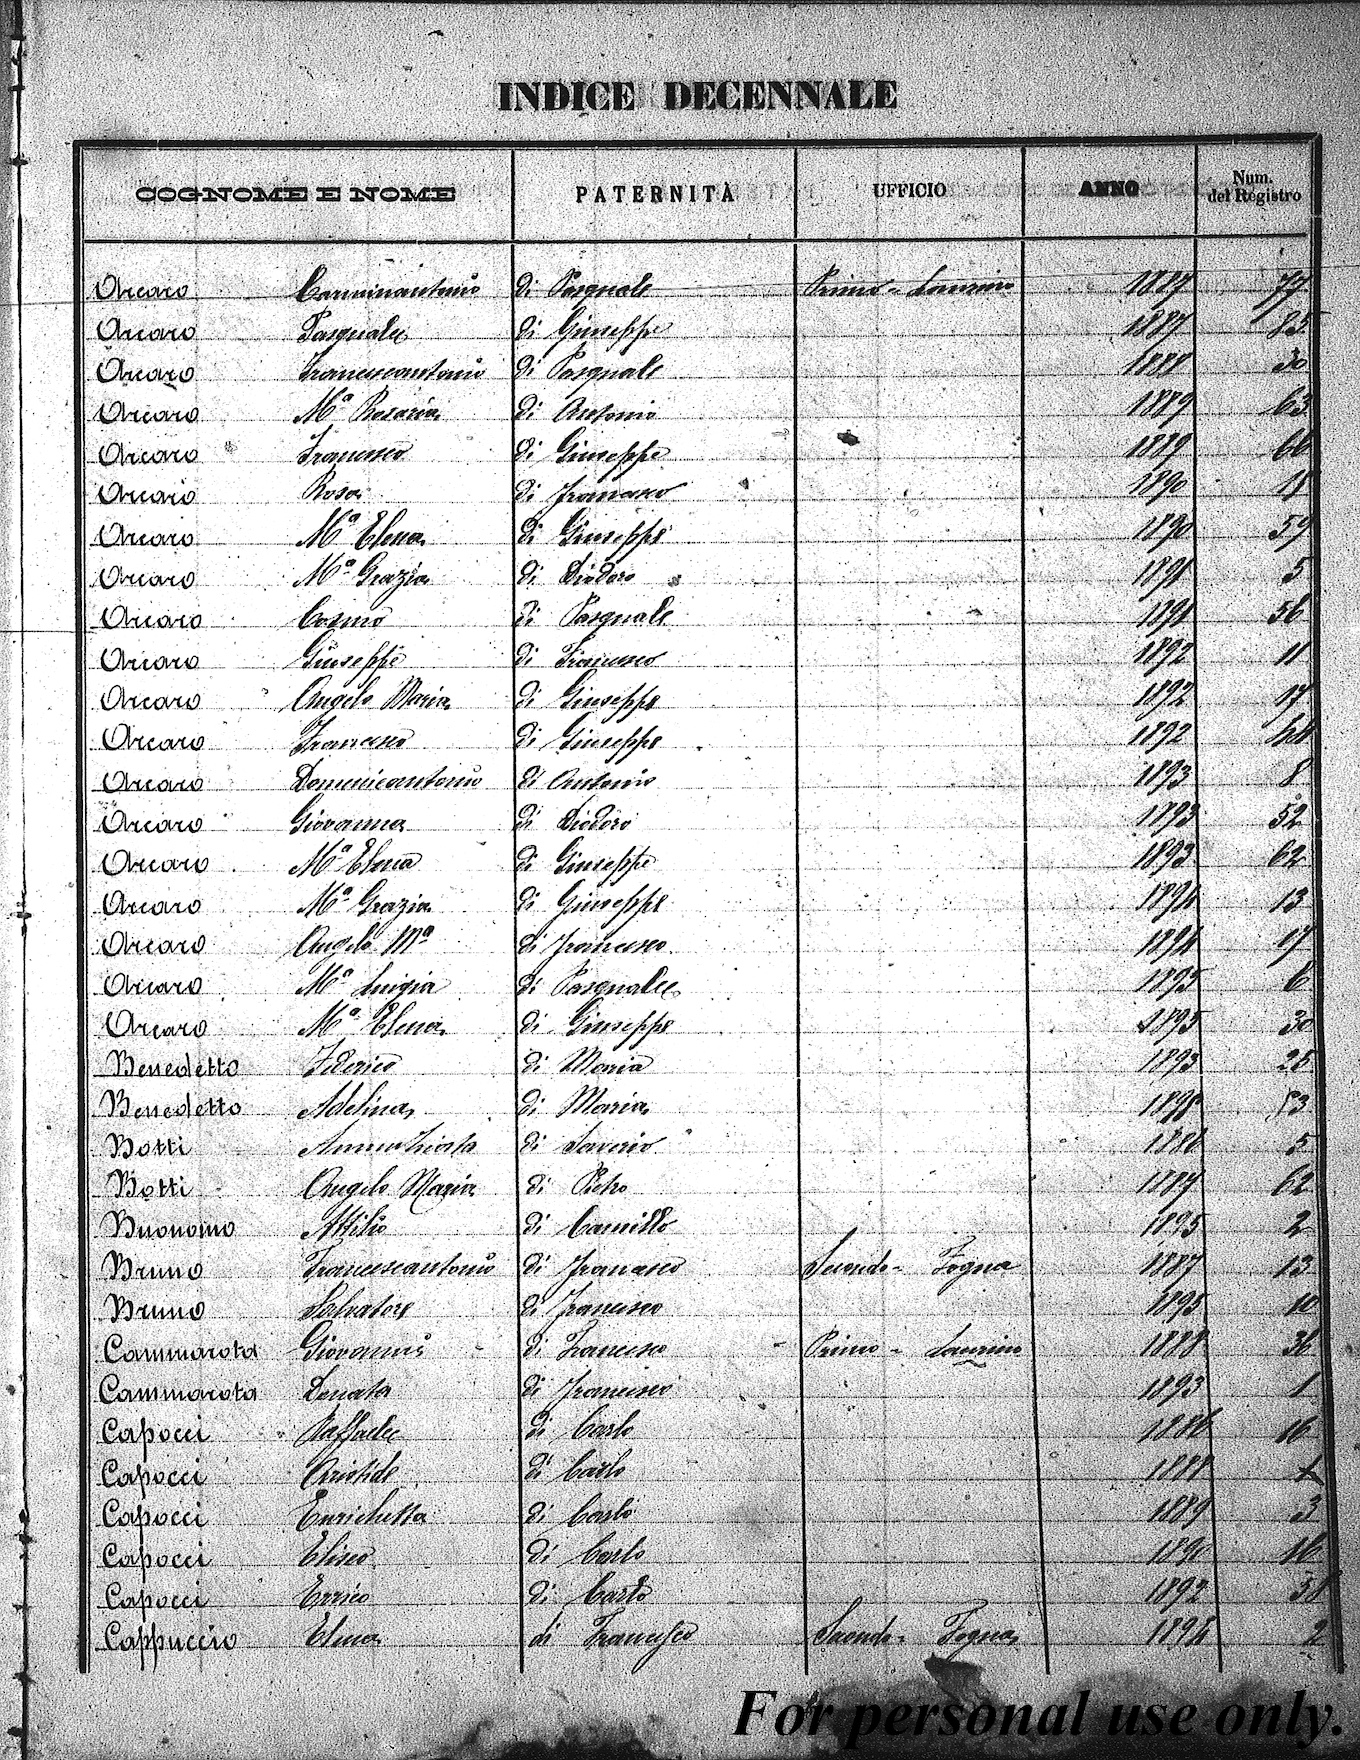 INDICE DECENNALE
COGNOME E NOME PATERNITÀ UFFICIO ANNO Num. del Registro
Arcaro Carminantonio di Pasquale Primo - Laurino 1887 77
Arcaro Pasquale di Giuseppe 1887 85
Arcaro Francescantonio di Pasquale 1888 30
Arcaro Mª Rosaria di Antonio 1889 63
Arcaro Francesco di Giuseppe 1889 66
Arcaro Rosa di Francesco 1890 18
Arcaro Mª Elena di Giuseppe 1890 59
Arcaro Mª Grazia di Diodoro 1891 5
Arcaro Cosmo di Pasquale 1891 56
Arcaro Giuseppe di Francesco 1892 11
Arcaro Angelo Maria di Giuseppe 1892 17
Arcaro Francesco di Giuseppe 1892 44
Arcaro Domenicantonio di Antonio 1893 8
Arcaro Giovanna di Diodoro 1893 52
Arcaro Mª Elena di Giuseppe 1893 62
Arcaro Mª Grazia di Giuseppe 1894 13
Arcaro Angelo Mª di Francesco 1894 17
Arcaro Mª Luigia di Pasquale 1895 6
Arcaro Mª Elena di Giuseppe 1895 30
Benedetto Federico di Maria 1893 25
Benedetto Adelina di Maria 1895 53
Botti di Saverio 1886 5
Botti Angelo Maria di Pietro 1887 62
Buonomo Attilio di Camillo 1895 2
Bruno Francescantonio di Francesco Secondo - Fogna 1887 13
Bruno Salvatore di Francesco 1895 10
Cammarota Giovanni di Francesco Primo - Laurino 1888 36
Cammarota Donata di Francesco 1893 1
Capocci Raffaele di Carlo 1886 16
Capocci Aristide di Carlo 1888
Capocci Enrichetta di Carlo 1889 3
Capocci Eliseo di Carlo 1890 16
Capocci Errico di Carlo 1892 38
Cappuccio Elena di Francesco Secondo - Fogna 1894 2
For personal use only.